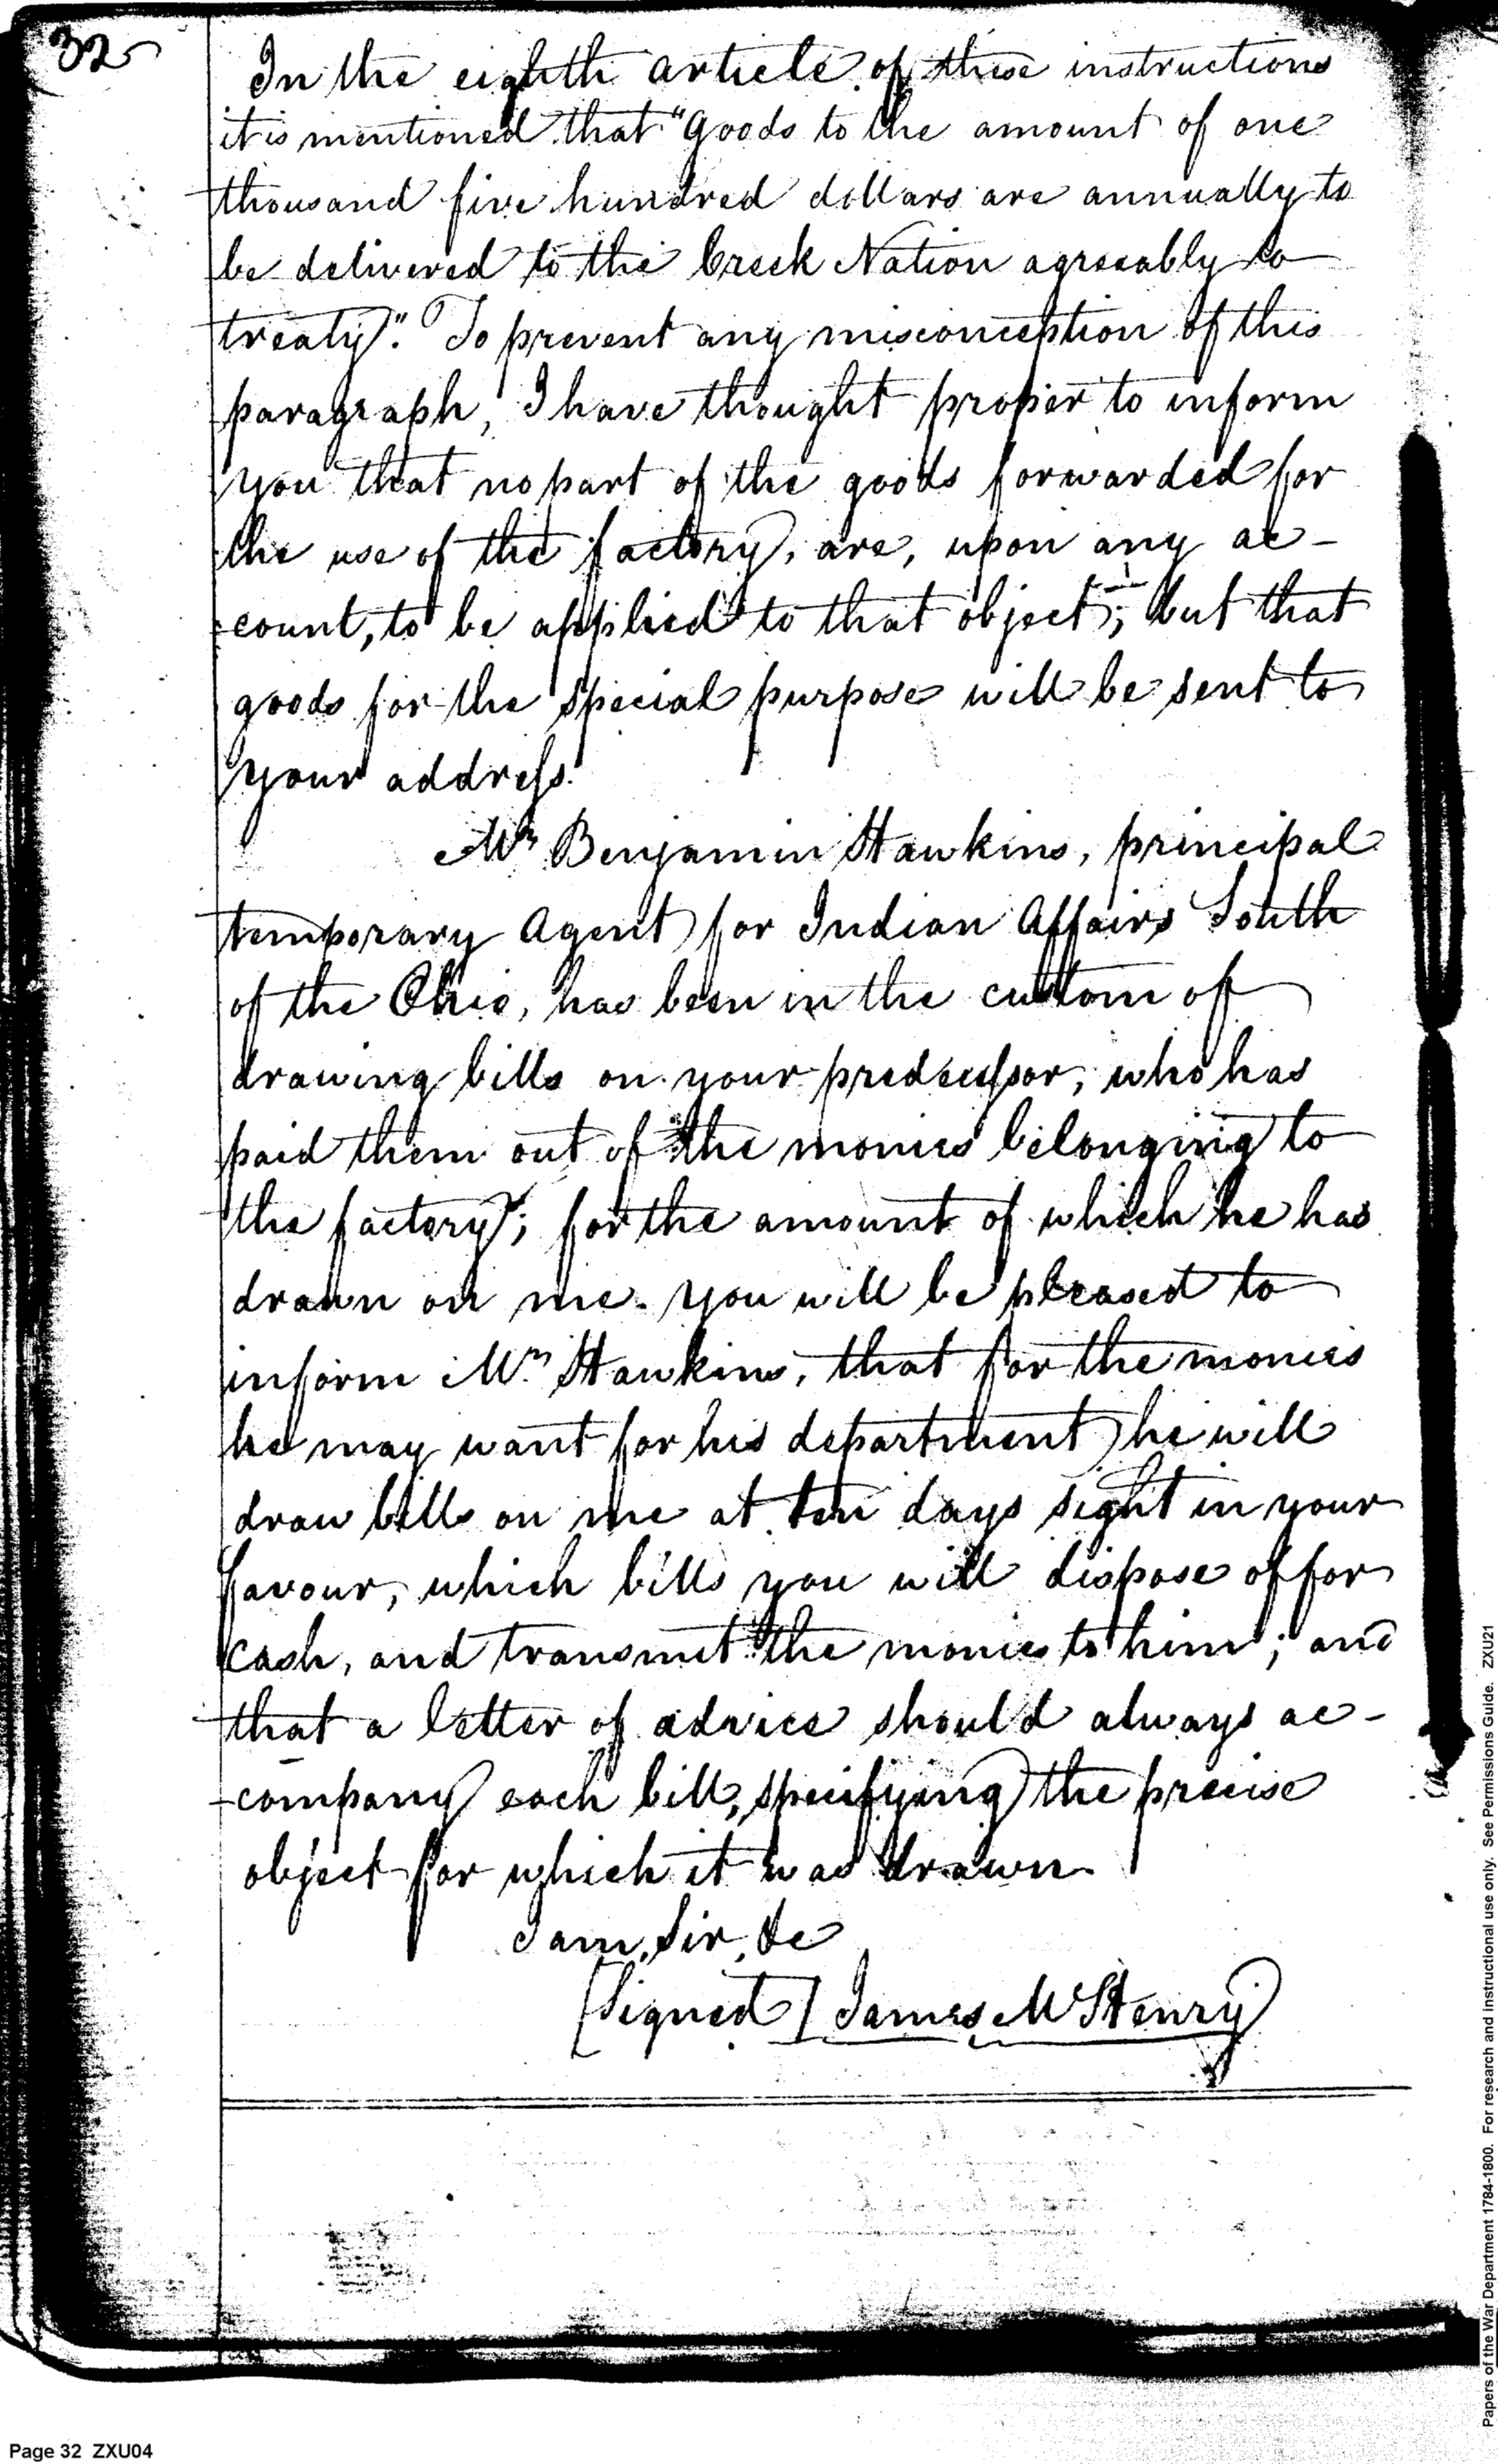 32
In the eighth article of these instructions
it is mentioned that "goods to the amount of one
thousand five hundred dollars are annually to
be delivered to the Creek Nation agreeably to
treaty". To prevent any misconception of this
paragraph, I have thought proper to inform
you that no part of the goods forwarded for
the use of the factory, are, upon any ac-
-count, to be applied to that object; but that
goods for the special purpose will be sent to
your address.
Mr Benjamin Hawkins, principal
temporary Agent for Indian Affairs South
of the Ohio, has been in the custom of
drawing bills on your predecessor, who has
paid them out of the monies belonging to
the factory; for the amount of which he has
drawn on me. You will be pleased to
inform Mr. Hawkins, that for the monies
he may want for his department he will
draw bills on me at ten days sight in your
favour, which bills you will dispose of for
cash, and transmit the monies to him; and
that a letter of advice should always ac-
-company each bill, specifying the precise
object for which it was drawn.
I am, Sir, &c
[Signed] James McHenry
Papers of the War Department 1784-1800. For research and instructional use only. See Permissions Guide. ZXU21
Page 32 ZXU04